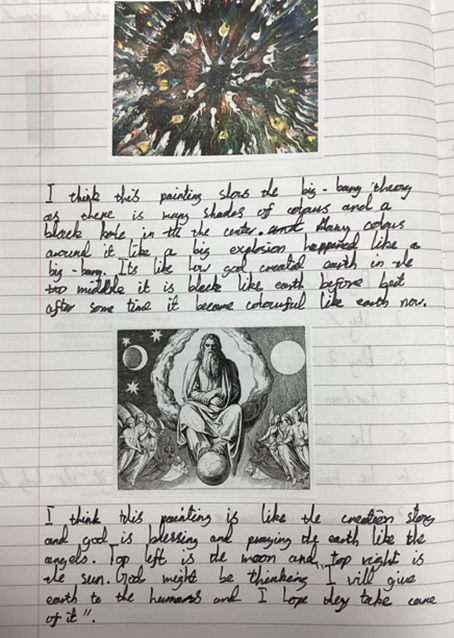 I think this painting slows the big-bang theory
as there is many shades of colours and a
black hole in the center. and Many colous
around it like a big explosion happened like a
big-bang. Its like how god created earth in the
middle it is black like earth before but
after some time it became colourful like earth now.
I think this painting is like the creation story
and god is blessing and praying the earth like the
angels. Top left is the moon and top right is
the sun. God might be thinking "I will give
earth to the humans and I hope they take care
of it".